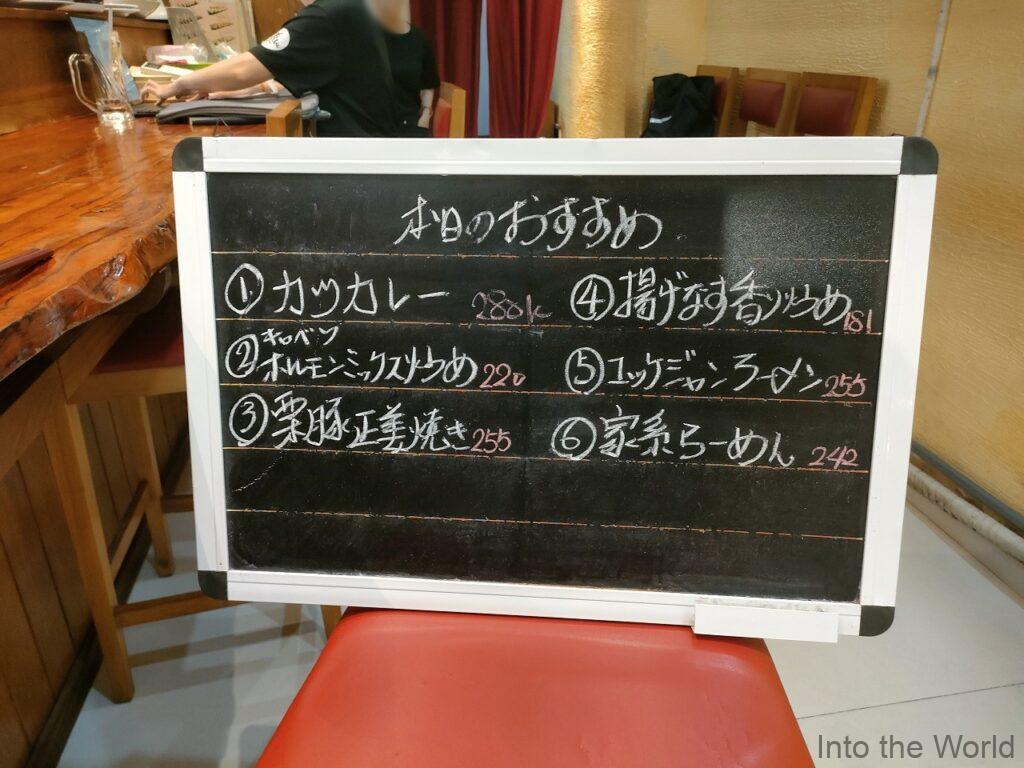 本日のおすすめ
① カツカレー 288k
キャベツ
② ホルモンミックス炒め 220
③ 栗豚正姜焼き 255
④ 揚げなす香り炒め 181
⑤ ユッケジャンラーメン 255
⑥ 家系らーめん 242
Into the World